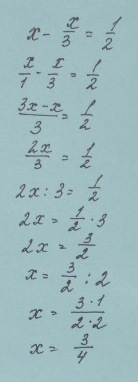 x - x/3 = 1/2
x/1 - x/3 = 1/2
3x-x/3 = 1/2
2x/3 = 1/2
2x : 3 = 1/2
2x = 1/2 · 3
2x = 3/2
x = 3/2 : 2
x = 3·1/2·2
x = 3/4